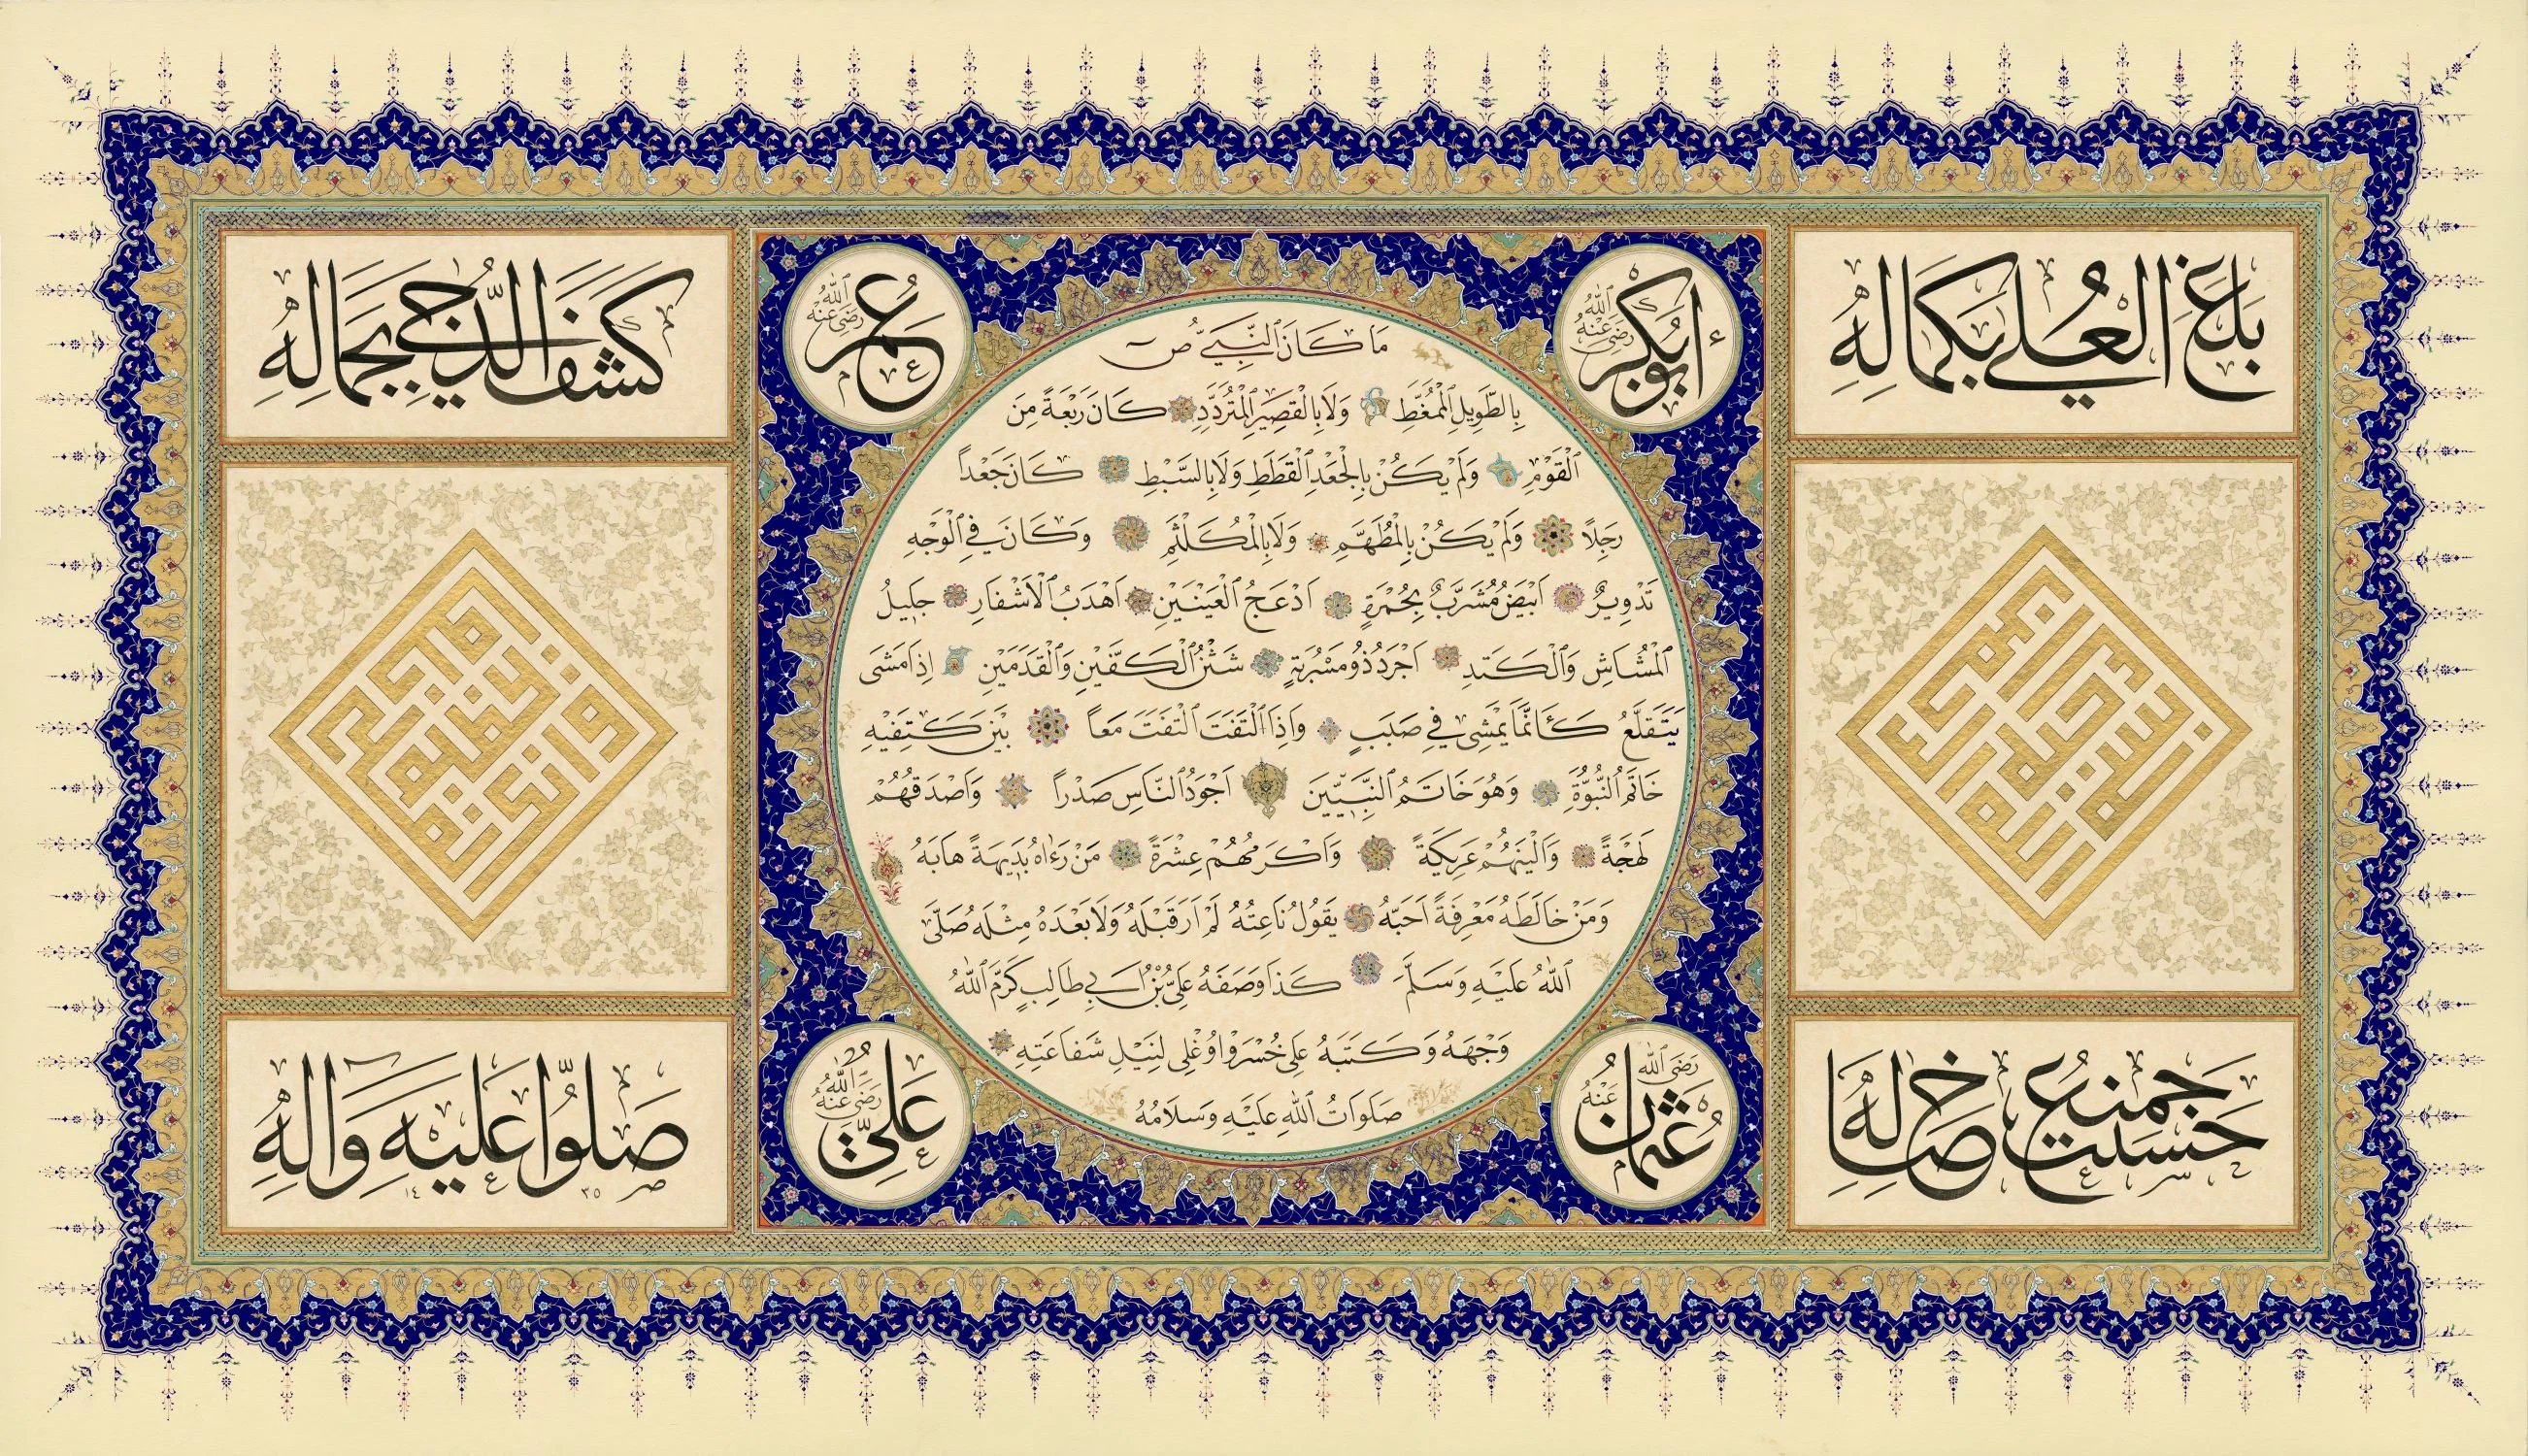 بَلَغَ الْعُلَى بِكَمَالِهِ
كَشَفَ الدُّجَى بِجَمَالِهِ
حَسُنَتْ جَمِيعُ خِصَالِهِ
صَلُّوا عَلَيْهِ وَآلِهِ
١٤ ٣٥
اَبُوبَكْرٍ رَضِيَ اللّٰهُ عَنْهُ
عُمَرُ رَضِيَ اللّٰهُ عَنْهُ
مَا كَانَ النَّبِيُّ ص
بِالطَّوِيلِ الْمُمَغَّطِ وَلَا بِالْقَصِيرِ الْمُتَرَدِّدِ كَانَ رَبْعَةً مِنَ
الْقَوْمِ وَلَمْ يَكُنْ بِالْجَعْدِ الْقَطَطِ وَلَا بِالسَّبْطِ كَانَ جَعْداً
رَجِلًا وَلَمْ يَكُنْ بِالْمُطَهَّمِ وَلَا بِالْمُكَلْثَمِ وَكَانَ فِي الْوَجْهِ
تَدْوِيرٌ اَبْيَضُ مُشَرَّبٌ بِحُمْرَةٍ اَدْعَجُ الْعَيْنَيْنِ اَهْدَبُ الْاَشْفَارِ جَلِيلُ
الْمُشَاشِ وَالْكَتَدِ اَجْرَدُ ذُو مَسْرُبَةٍ شَثْنُ الْكَفَّيْنِ وَالْقَدَمَيْنِ اِذَا مَشَى
يَتَقَلَّعُ كَاَنَّمَا يَمْشِى فِي صَبَبٍ وَاِذَا الْتَفَتَ الْتَفَتَ مَعاً بَيْنَ كَتِفَيْهِ
خَاتَمُ النُّبُوَّةِ وَهُوَ خَاتَمُ النَّبِيِّينَ اَجْوَدُ النَّاسِ صَدْراً وَاَصْدَقُهُمْ
لَهْجَةً وَاَلْيَنُهُمْ عَرِيكَةً وَاَكْرَمُهُمْ عِشْرَةً مَنْ رَءَاهُ بَدِيهَةً هَابَهُ
وَمَنْ خَالَطَهُ مَعْرِفَةً اَحَبَّهُ يَقُولُ نَاعِتُهُ لَمْ اَرَ قَبْلَهُ وَلَا بَعْدَهُ مِثْلَهُ صَلَّى
اللّٰهُ عَلَيْهِ وَسَلَّمَ كَذَا وَصَفَهُ عَلِيُّ بْنُ اَبِي طَالِبٍ كَرَّمَ اللّٰهُ
وَجْهَهُ وَكَتَبَهُ عَلِى خُسْرَوْ اُوغْلِى لِنَيْلِ شَفَاعَتِهِ
صَلَوَاتُ اللّٰهِ عَلَيْهِ وَسَلَامُهُ
عُثْمَانُ رَضِيَ اللّٰهُ عَنْهُ
عَلِيٌّ رَضِيَ اللّٰهُ عَنْهُ